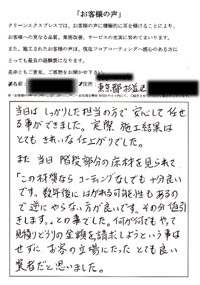 「お客様の声」
クリーンエクスプレスでは、お客様の声に積極的に耳を傾けることにより、
お客様への更なる品質、業務改善、サービスの充実に努めてまいります。
また、施工されたお客様の声は、現在フロアコーティングへ感心のある方に
とっても最良の経験談になります。
是非ともご意見、ご感想をお聞かせ下さい。
名前:
東京都杉並区
当日は しっかりした担当の方で 安心して 任せ
る事ができました。実際 施工結果は
とても きれいな 仕上がりでした。
また 当日 階段部分の床材を見られて
「この材質なら コーティングなしでも 十分良い
です。数年後に はがれる可能性もあるの
で逆に やらない方が良いです。その分値引
きします。」との事でした。何が何でも やって
見積りどうりの金額を請求しようという事は
せずに お客の立場にたった とても良い
業者だと思いました。